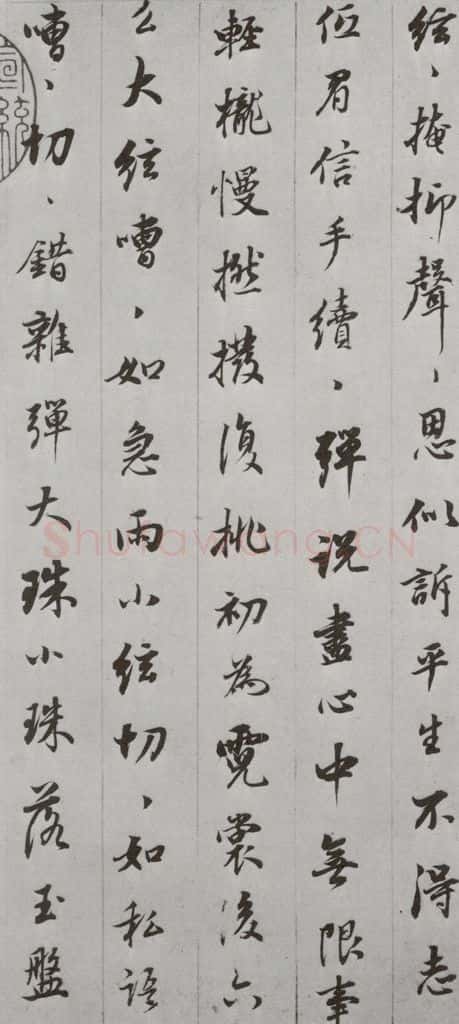 絃〻掩抑聲〻思似訴平生不得志
低眉信手續〻彈說盡心中無限事
輕攏慢撚撥復挑初為霓裳後六
么大絃嘈〻如急雨小絃切〻如私語
嘈〻切〻錯雜彈大珠小珠落玉盤
宣統
Shufawang.CN